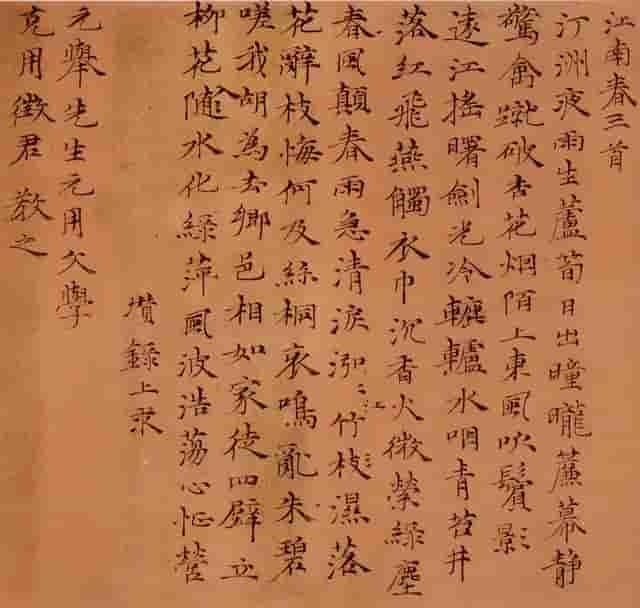 江南春三首
汀洲夜雨生蘆筍日出曈曨簾幕静
驚禽蹴破杏花烟陌上東風吹鬢影
遠江搖曙劍光冷轆轤水咽青苔井
落紅飛燕觸衣巾沉香火微縈綠塵
春風顛春雨急清淚泓〻江竹枝濕落
花辭枝悔何及絲桐哀鳴亂朱碧
嗟我胡為去鄉邑相如家徒四壁立
柳花隨入水化綠萍風波浩蕩心怔營
瓚錄上求
元舉先生元用文學
克用徵君 教之